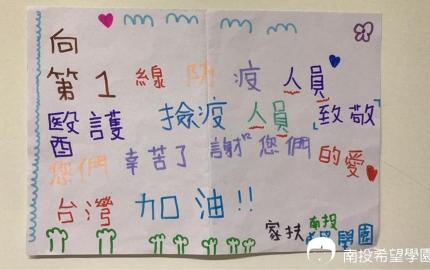 向
第1線防疫人員
醫護 檢疫人員「致敬」
您們辛苦了 謝謝您們的愛
台灣加油!!
家扶南投
希望學園
南投希望學園